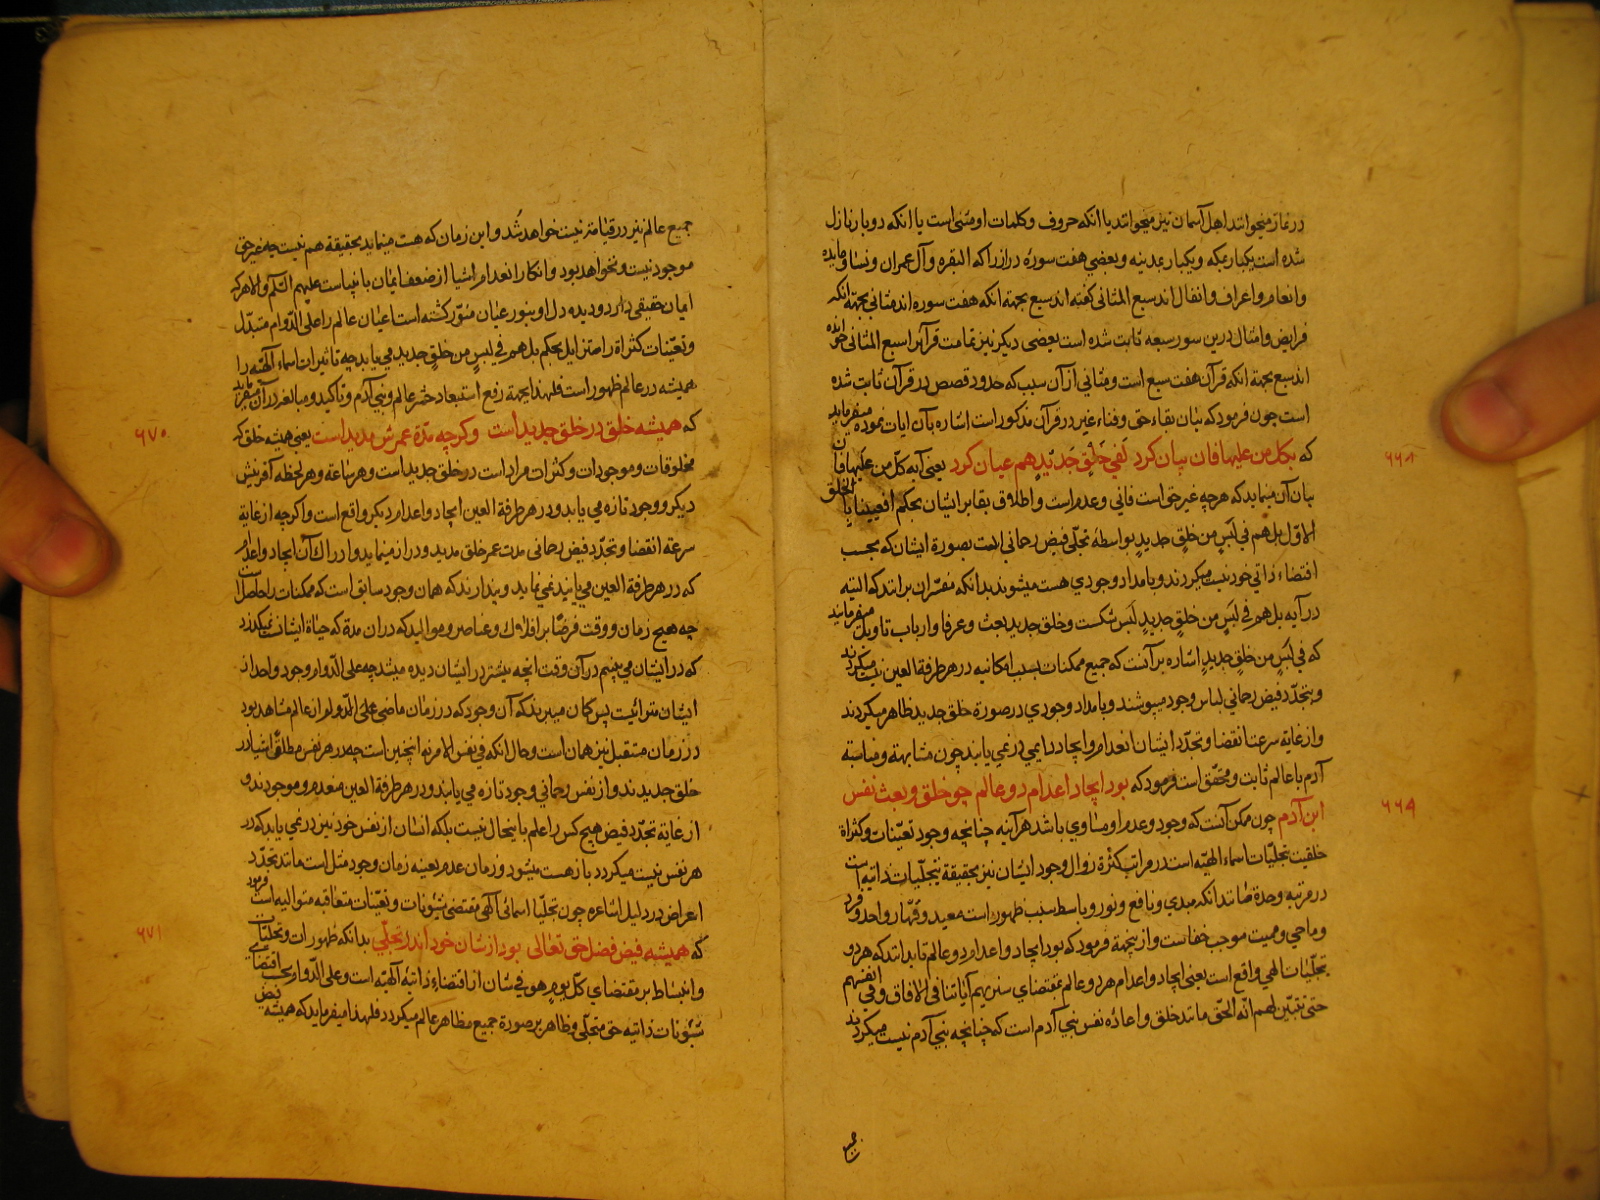 در نماز میخوانند اهل آسمان نیز میخوانند یا انکه حروف و کلمات او مثنی است یا انکه دو بار نازل
شده است یکبار بمکه و یکبار بمدینه و بعضی هفت سورهٔ دراز را که البقره و آل عمران و نسا و مایده
و انعام و اعراف و انفال اند سبع المثانی گفته اند سبع بجهة انکه هفت سوره اند مثانی بجهة انکه
فرایض و امثال درین سور سبعه ثابت شده است بعضی دیکر نیز تمامت قرآنرا سبع المثانی خوانده
اند سبع بجهة انکه قرآن هفت سبع است و مثانی از آن سبب که حدود قصص در قرآن ثابت شده
است چون فرمود که بیان بقاء حق و فناء غیر در قرآن مذکور است اشاره بآن ایات نموده میفرماید
۶۶۸
که بکل من علیها فان بیان کرد لفی خلقٍ جدیدٍ هم عیان کرد یعنی آیه کلّ من علیها فان
بیان آن مینماید که هرچه غیر حق است فانی و عدم است و اطلاق بقا بر ایشان بحکم افعیینا بالخلق
الاوّل بل هم فی لبسٍ من خلقٍ جدیدٍ بواسطهٔ تجلّی فیض رحانی است بصورة ایشان که بحسب
اقتضاء ذاتی خود نیست میکردند و بامداد وجودی هست میشوند بدانکه مفسّران برانند که البته
در آیه بل هم فی لبسٍ من خلقٍ جدیدٍ لبس شکست و خلق جدید بعث و عرفا و ارباب تاویل میفرمایند
که فی لبسٍ من خلقٍ جدیدٍ اشاره بر آنست که جمیع ممکنات بسبب امکانیه در هر طرفة العین نیست میکردند
و بتجدّد فیض رحمانی لباس وجود میپوشند و بامداد وجودی در صورة خلق جدید ظاهر میکردند
و از غایة سرعت انقضا و تجدّد ایشان انعدام و ایجاد دایمی در نمی یابند چون مشابهة و مناسبة
آدم با عالم ثابت و محقّق است فرمود که بود ایجاد اعدام دو عالم چو خلق و بعث نفس
۶۶۹
ابن آدم چون ممکن آنست که وجود و عدم او مساوی باشد هرآینه چنانچه وجود تعیّنات و کثراة
خلقیت تجلّیات اسماء الهیّه است در مراتب کثرة زوال وجود ایشان نیز بحقیقة بتجلّیات ذاتیه است
در مرتبه وحدة صانند انکه مبدی و نافع و نور و باسط سبب ظهور است معید و قهّار و احد و فرد
و ماحی و ممیت موجب خفاست و از ینجهة فرمود که بود ایجاد و اعدام دو عالم تا بدانند که هر دو
تجلّیات الهی واقع است یعنی ایجاد و اعدام هر دو عالم بمقتضای سنریهم آیاتنا فی الافاق و فی انفسهم
حتی تتبیّن لهم انّه الحق مانند خلق و اعادهٔ نفس بنی آدم است که چنانچه بنی آدم نیست میکردند
جمیع
جمیع عالم نیز در قیامة نیست خواهد شد و این زمان که هست مینماید بحقیقة هم نیست چه غیر حق
موجود نیست و نخواهد بود و انکار انعدام اشیا از ضعف ایمان بانبیاست علیهم السّلم و الا هر که
ایمان حقیقی دارد و دیده دل او بنور عیان منوّر کشته است اعیان عالم را علی الدّوام متبدّل
و تعیّنات کثراة را متزایل بحکم بل هم فی لبسٍ من خلقٍ جدید می یابد چه تاثیرات اسماء آلهیّه را
همیشه در عالم ظهور است فلهذا بجهة رفع استبعاد حشر عالم و بنی آدم و تاکید و مبالغه در آن میفرماید
۶۷۰
که همیشه خلق در خلق جدید است و کرچه مدّة عمرش مدید است یعنی همیشه خلق که
مخلوقات و موجودات و کثرات مراد است در خلق جدید است و هر ساعة و هر لحظه آفرینش
دیکر و وجود تازه می یابد و در هر طرفة العین ایجاد و اعدام دیکر واقع است و اکرچه از غایة
سرعة انقضا و تجدّد فیض رحمانی مدت عمر خلق مدید و دراز مینماید و ادراک آن ایجاد و اعدام
که در هر طرفة العین می یابند نمی نماید و پندارند که همان وجود سابق است که ممکنات را حاصل است
چه هیچ زمان و وقت فرضًا بر افلاک و عناصر و موالید که در ان مدة که حیاة ایشان نمیکذرد
که در ایشان می بینیم در آن وقت انچه بیشتر در ایشان دیده میشد چه علی الدّوام وجود واحد از
ایشان مترائیست پس کمان میبرند که آن وجود که در زمان ماضی علی الدّوام از عالم مشاهد بود
در زمان مستقبل نیز همان است و حال انکه فی نفس الامر نه اینچنین است چه در هر نفس مطلقًا اشیا در
خلق جدیدند و از نفس رحمانی وجود تازه می یابند و در هر طرفة العین منعدم و موجودند و
از غایة تجدّد فیض هیچ کس را علم باینحال نیست بلکه انسان از نفس خود نیز در نمی یابد که در
هر نفس نیست میکردد باز هست میشود و زمان عدم بعینه زمان وجود مثل است مانند تجدّد
اعراض در دلیل اشاعره چون تجلیّات اسمائی آلهی مقتضی شئونات و تعیّنات متعاقبه متوالیه است فرمود
۶۷۱
که همیشه فیض فضل حق تعالی بود از شان خود اندر تجلّی بدانکه ظهورات و تجلیّات
و انبساط بر مقتضای کلّ یومٍ هو فی شان از اقتضاء ذاتیهٔ آلهیّه است و علی الدّوام بحسب اقتضای فیض
شئونات ذاتیه حق متجلّی و ظاهر بر صورة جمیع مظاهر عالم میکردد فلهذا میفرماید که همیشه